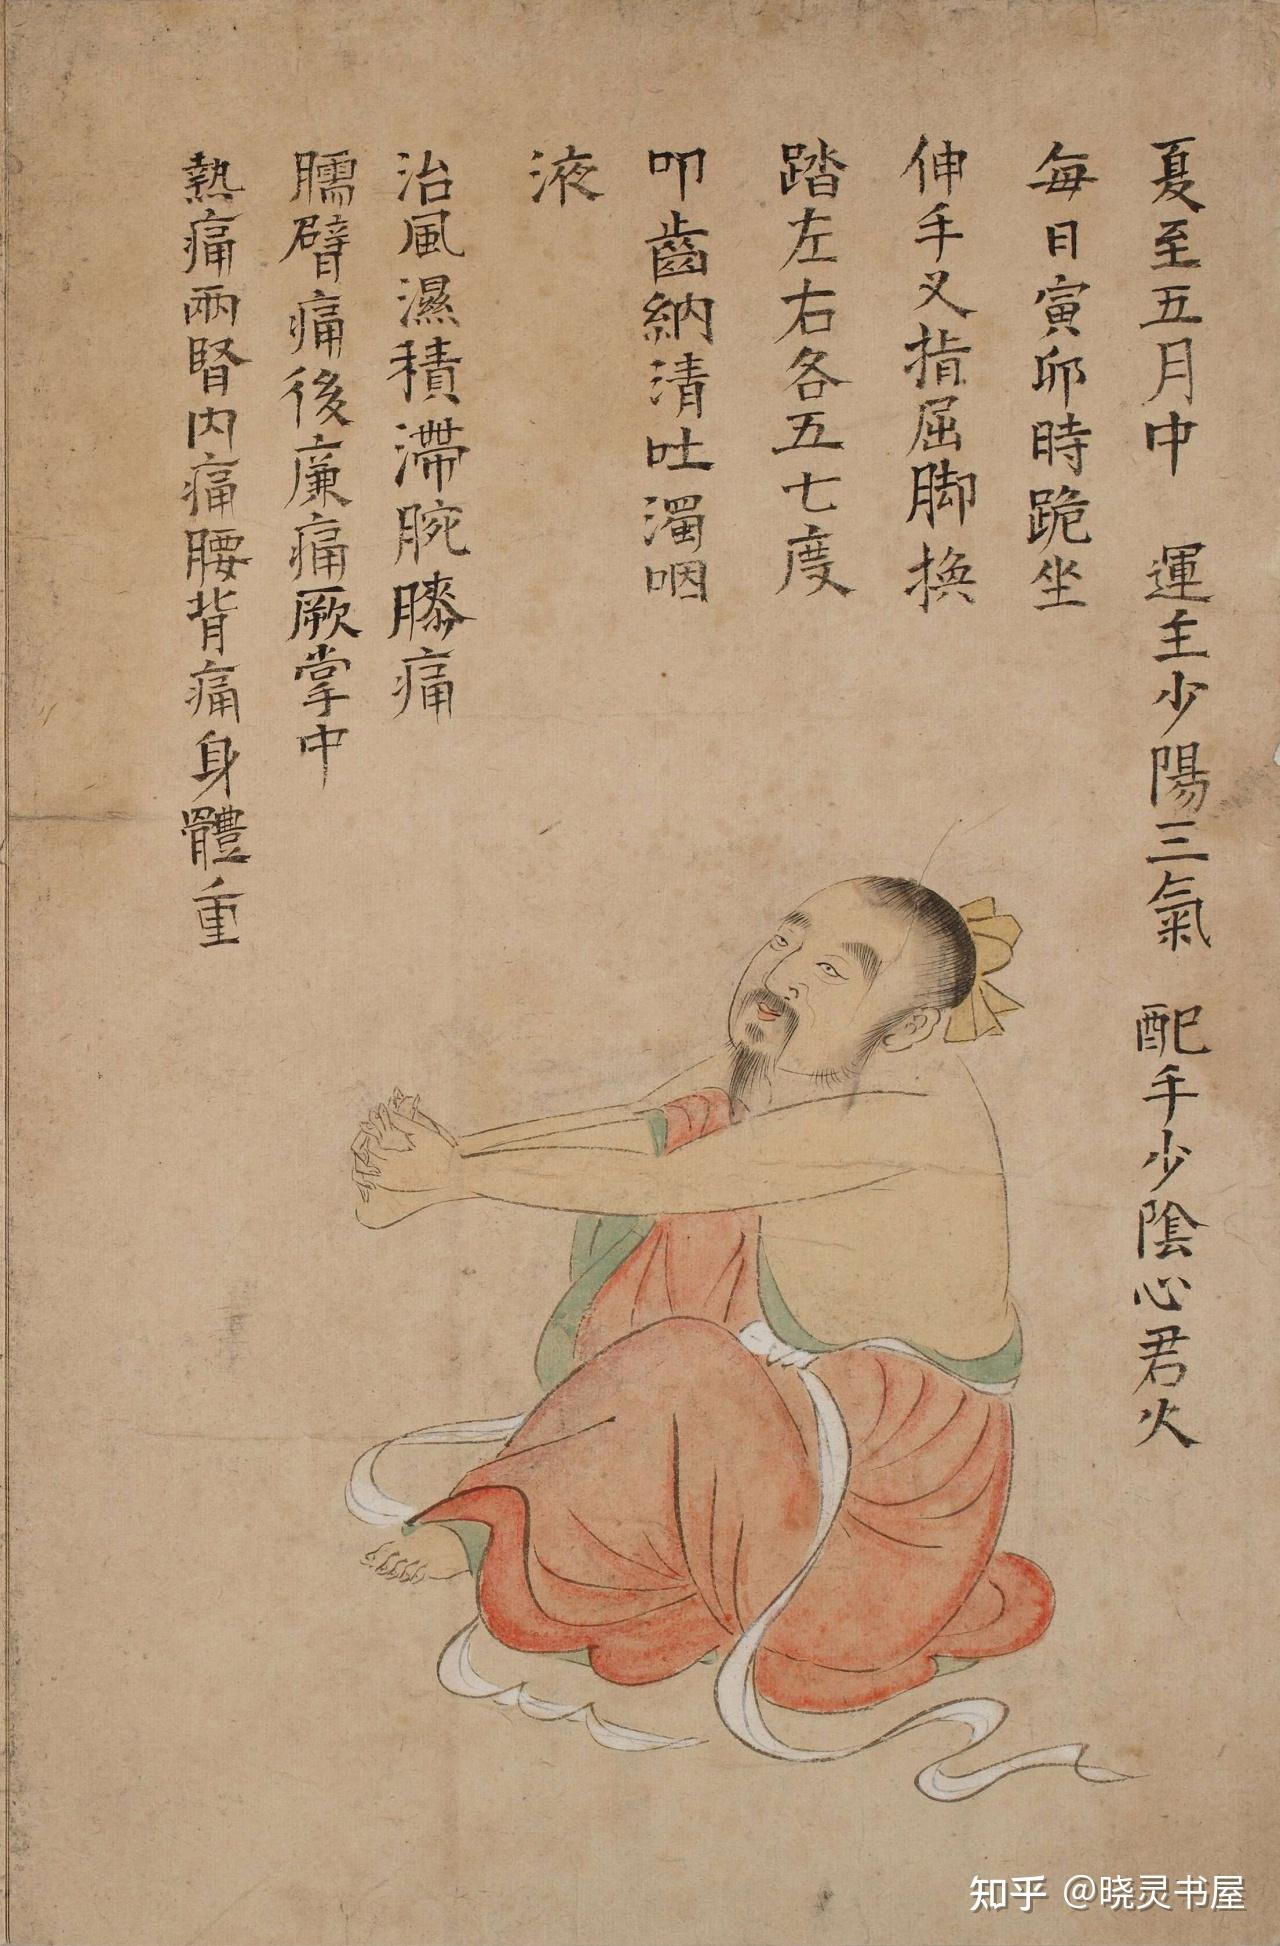 夏至五月中　運主少陽三氣　配手少陰心君火
每日寅卯時跪坐
伸手叉指屈脚換
踏左右各五七度
叩齒納清吐濁咽
液
治風濕積滯腕膝痛
臑臂痛後廉痛厥掌中
熱痛兩腎内痛腰背痛身體重
知乎 @晓灵书屋